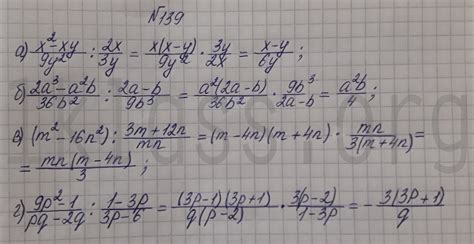 №139
а) (x²-xy)/(9y²) : 2x/3y = x(x-y)/(9y²) · 3y/2x = (x-y)/6y ;
б) (2a³-a²b)/(36b²) : (2a-b)/(9b³) = a²(2a-b)/(36b²) · 9b³/(2a-b) = a²b/4 ;
в) (m²-16n²) : (3m+12n)/mn = (m-4n)(m+4n) · mn/3(m+4n) =
= mn(m-4n)/3 ;
г) (9p²-1)/(pq-2q) : (1-3p)/(3p-6) = (3p-1)(3p+1)/q(p-2) · 3(p-2)/(1-3p) = - 3(3p+1)/q